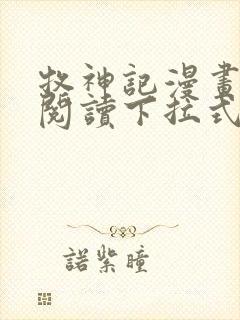 牧神記漫畫
閱讀下拉式
諾紫瞳